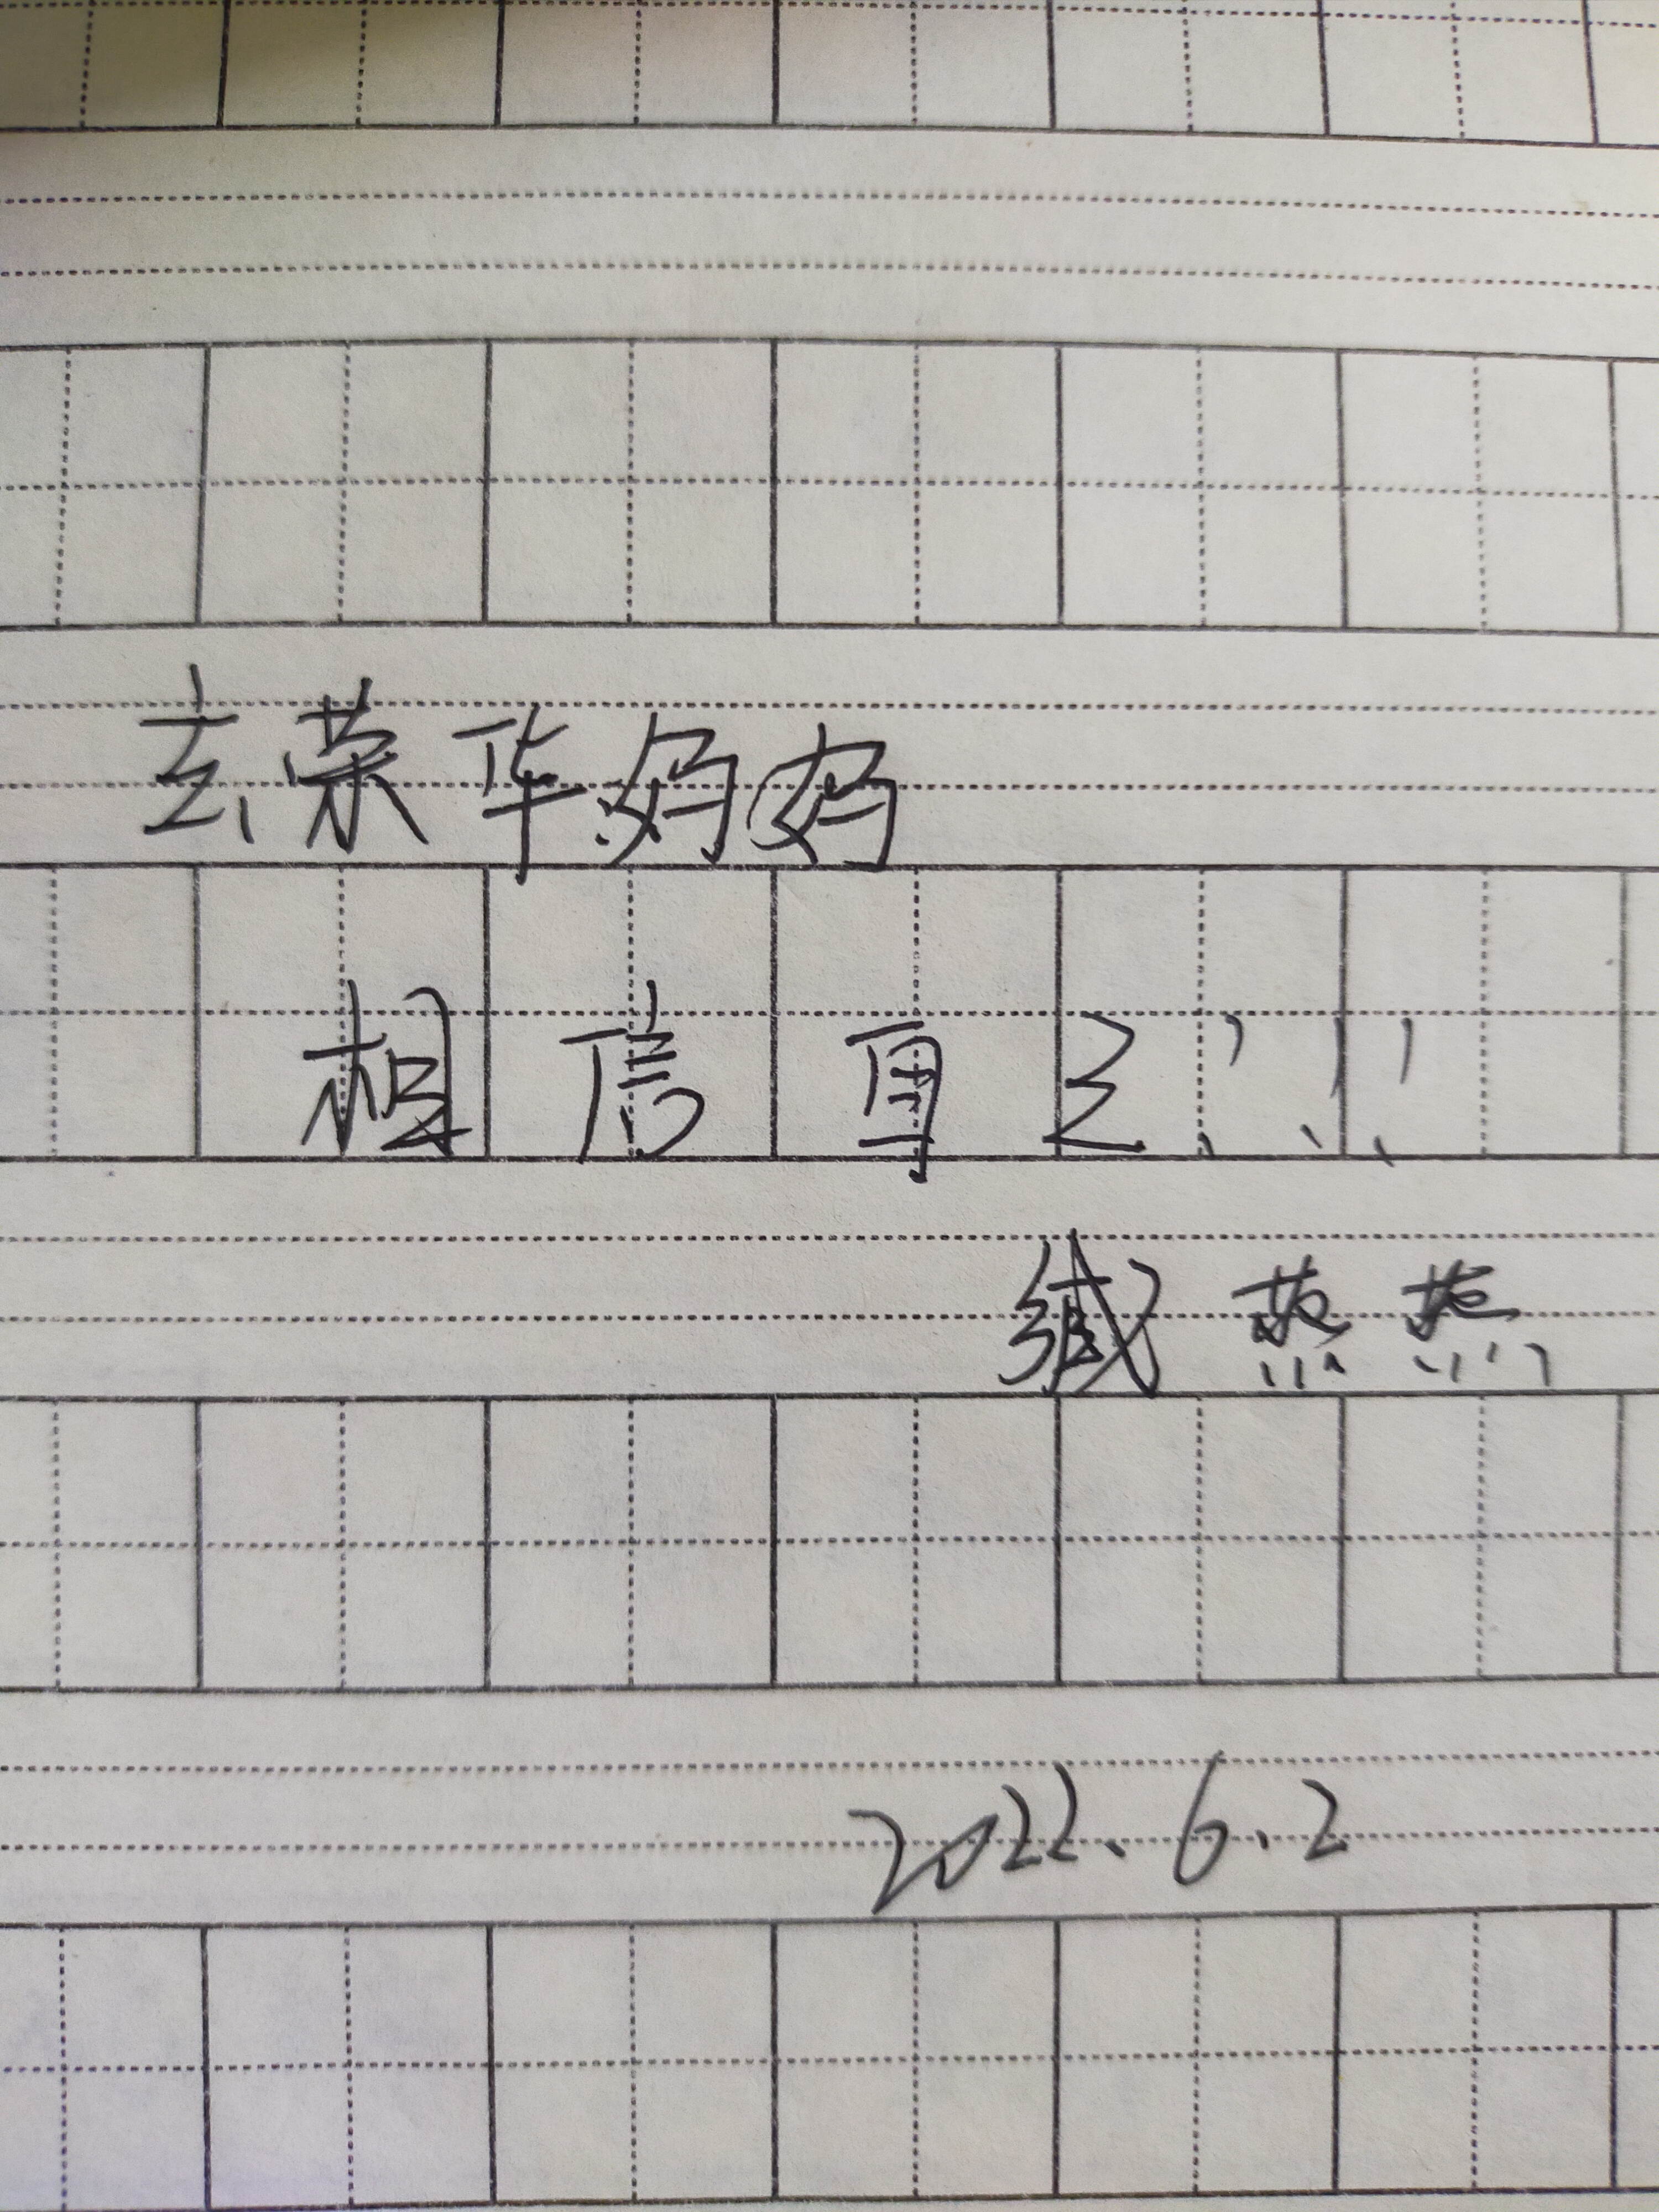 玄荣华妈妈
相信
燕燕
2022.6.2